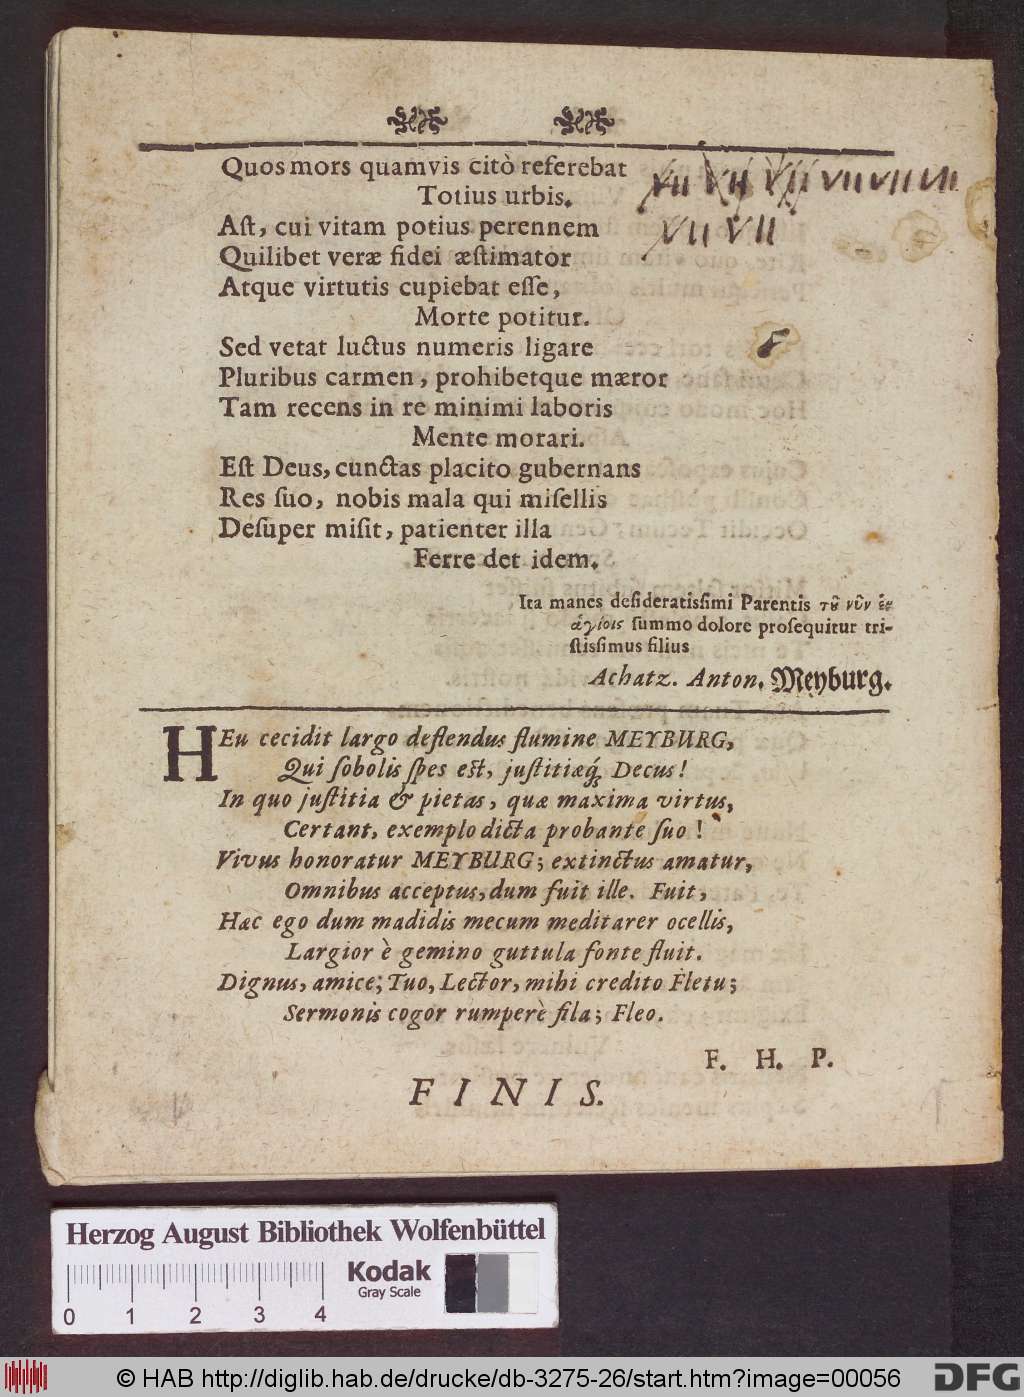 Quos mors quamvis citò referebat
Totius urbis.
Aſt, cui vitam potius perennem
Quilibet veræ fidei æſtimator
Atque virtutis cupiebat eſſe,
Morte potitur.
Sed vetat luctus numeris ligare
Pluribus carmen, prohibetque mæror
Tam recens in re minimi laboris
Mente morari.
Eſt Deus, cunctas placito gubernans
Res ſuo, nobis mala qui miſellis
Deſuper miſit, patienter illa
Ferre det idem.
Ita manes deſideratiſſimi Parentis τȣ͂ νῦν ἐν
ἁγίοις ſummo dolore proſequitur tri-
ſtiſſimus filius
Achatz. Anton. Meyburg.
HEu cecidit largo deflendus flumine MEYBURG,
Qui ſobolis ſpes eſt, juſtitiæq́; Decus!
In quo juſtitia & pietas, quæ maxima virtus,
Certant, exemplo dicta probante ſuo!
Vivus honoratur MEYBURG; extinctus amatur,
Omnibus acceptus, dum fuit ille. Fuit,
Hæc ego dum madidis mecum meditarer ocellis,
Largior è gemino guttula fonte fluit.
Dignus, amice; Tuo, Lector, mihi credito Fletu;
Sermonis cogor rumperè fila; Fleo.
F. H. P.
FINIS.
Herzog August Bibliothek Wolfenbüttel
Kodak
Gray Scale
0 1 2 3 4
© HAB http://diglib.hab.de/drucke/db-3275-26/start.htm?image=00056
DFG